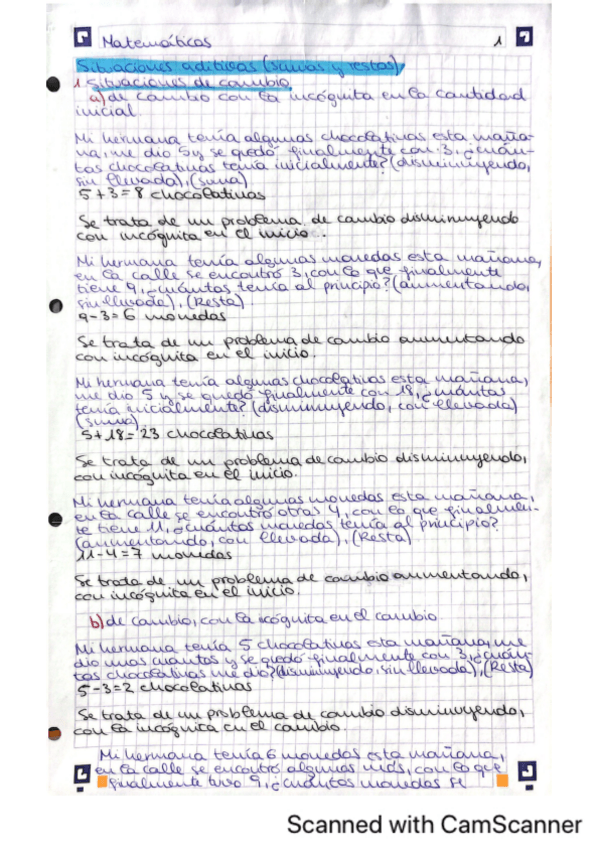 Matemáticas 1
Situaciones aditivas (sumas y restas)
1. Situaciones de cambio
a) de cambio con la incógnita en la cantidad
inicial.
Mi hermana tenía algunas chocolatinas esta maña-
na, me dio 5 y se quedó finalmente con 3, ¿cuán-
tas chocolatinas tenía inicialmente? (disminuyendo,
sin llevada), (suma)
5+3=8 chocolatinas
Se trata de un problema de cambio disminuyendo
con incógnita en el inicio.
Mi hermana tenía algunas monedas esta mañana,
en la calle se encontró 3, con lo que finalmente
tiene 9, ¿cuántas tenía al principio? (aumentando,
sin llevada), (Resta)
9-3=6 monedas
Se trata de un problema de cambio aumentando
con incógnita en el inicio.
Mi hermana tenía algunas chocolatinas esta mañana,
me dio 5 y se quedó finalmente con 18, ¿cuántas
tenía inicialmente? (disminuyendo, con llevada)
(suma)
5+18=23 chocolatinas
Se trata de un problema de cambio disminuyendo,
con incógnita en el inicio.
Mi hermana tenía algunas monedas esta mañana,
en la calle se encontró otras 4, con lo que finalmen-
te tiene 11, ¿cuántas monedas tenía al principio?
(aumentando, con llevada), (Resta)
11-4=7 monedas
Se trata de un problema de cambio aumentando,
con incógnita en el inicio.
b) de cambio, con la incógnita en el cambio
Mi hermana tenía 5 chocolatinas esta mañana, me
dio unas cuantas y se quedó finalmente con 3, ¿cuán-
tas chocolatinas me dio? (disminuyendo, sin llevada), (Resta)
5-3=2 chocolatinas
Se trata de un problema de cambio disminuyendo,
con la incógnita en el cambio.
Mi hermana tenía 6 monedas esta mañana,
en la calle se encontró algunas más, con lo que
finalmente tuvo 9, ¿cuántas monedas se
Scanned with CamScanner